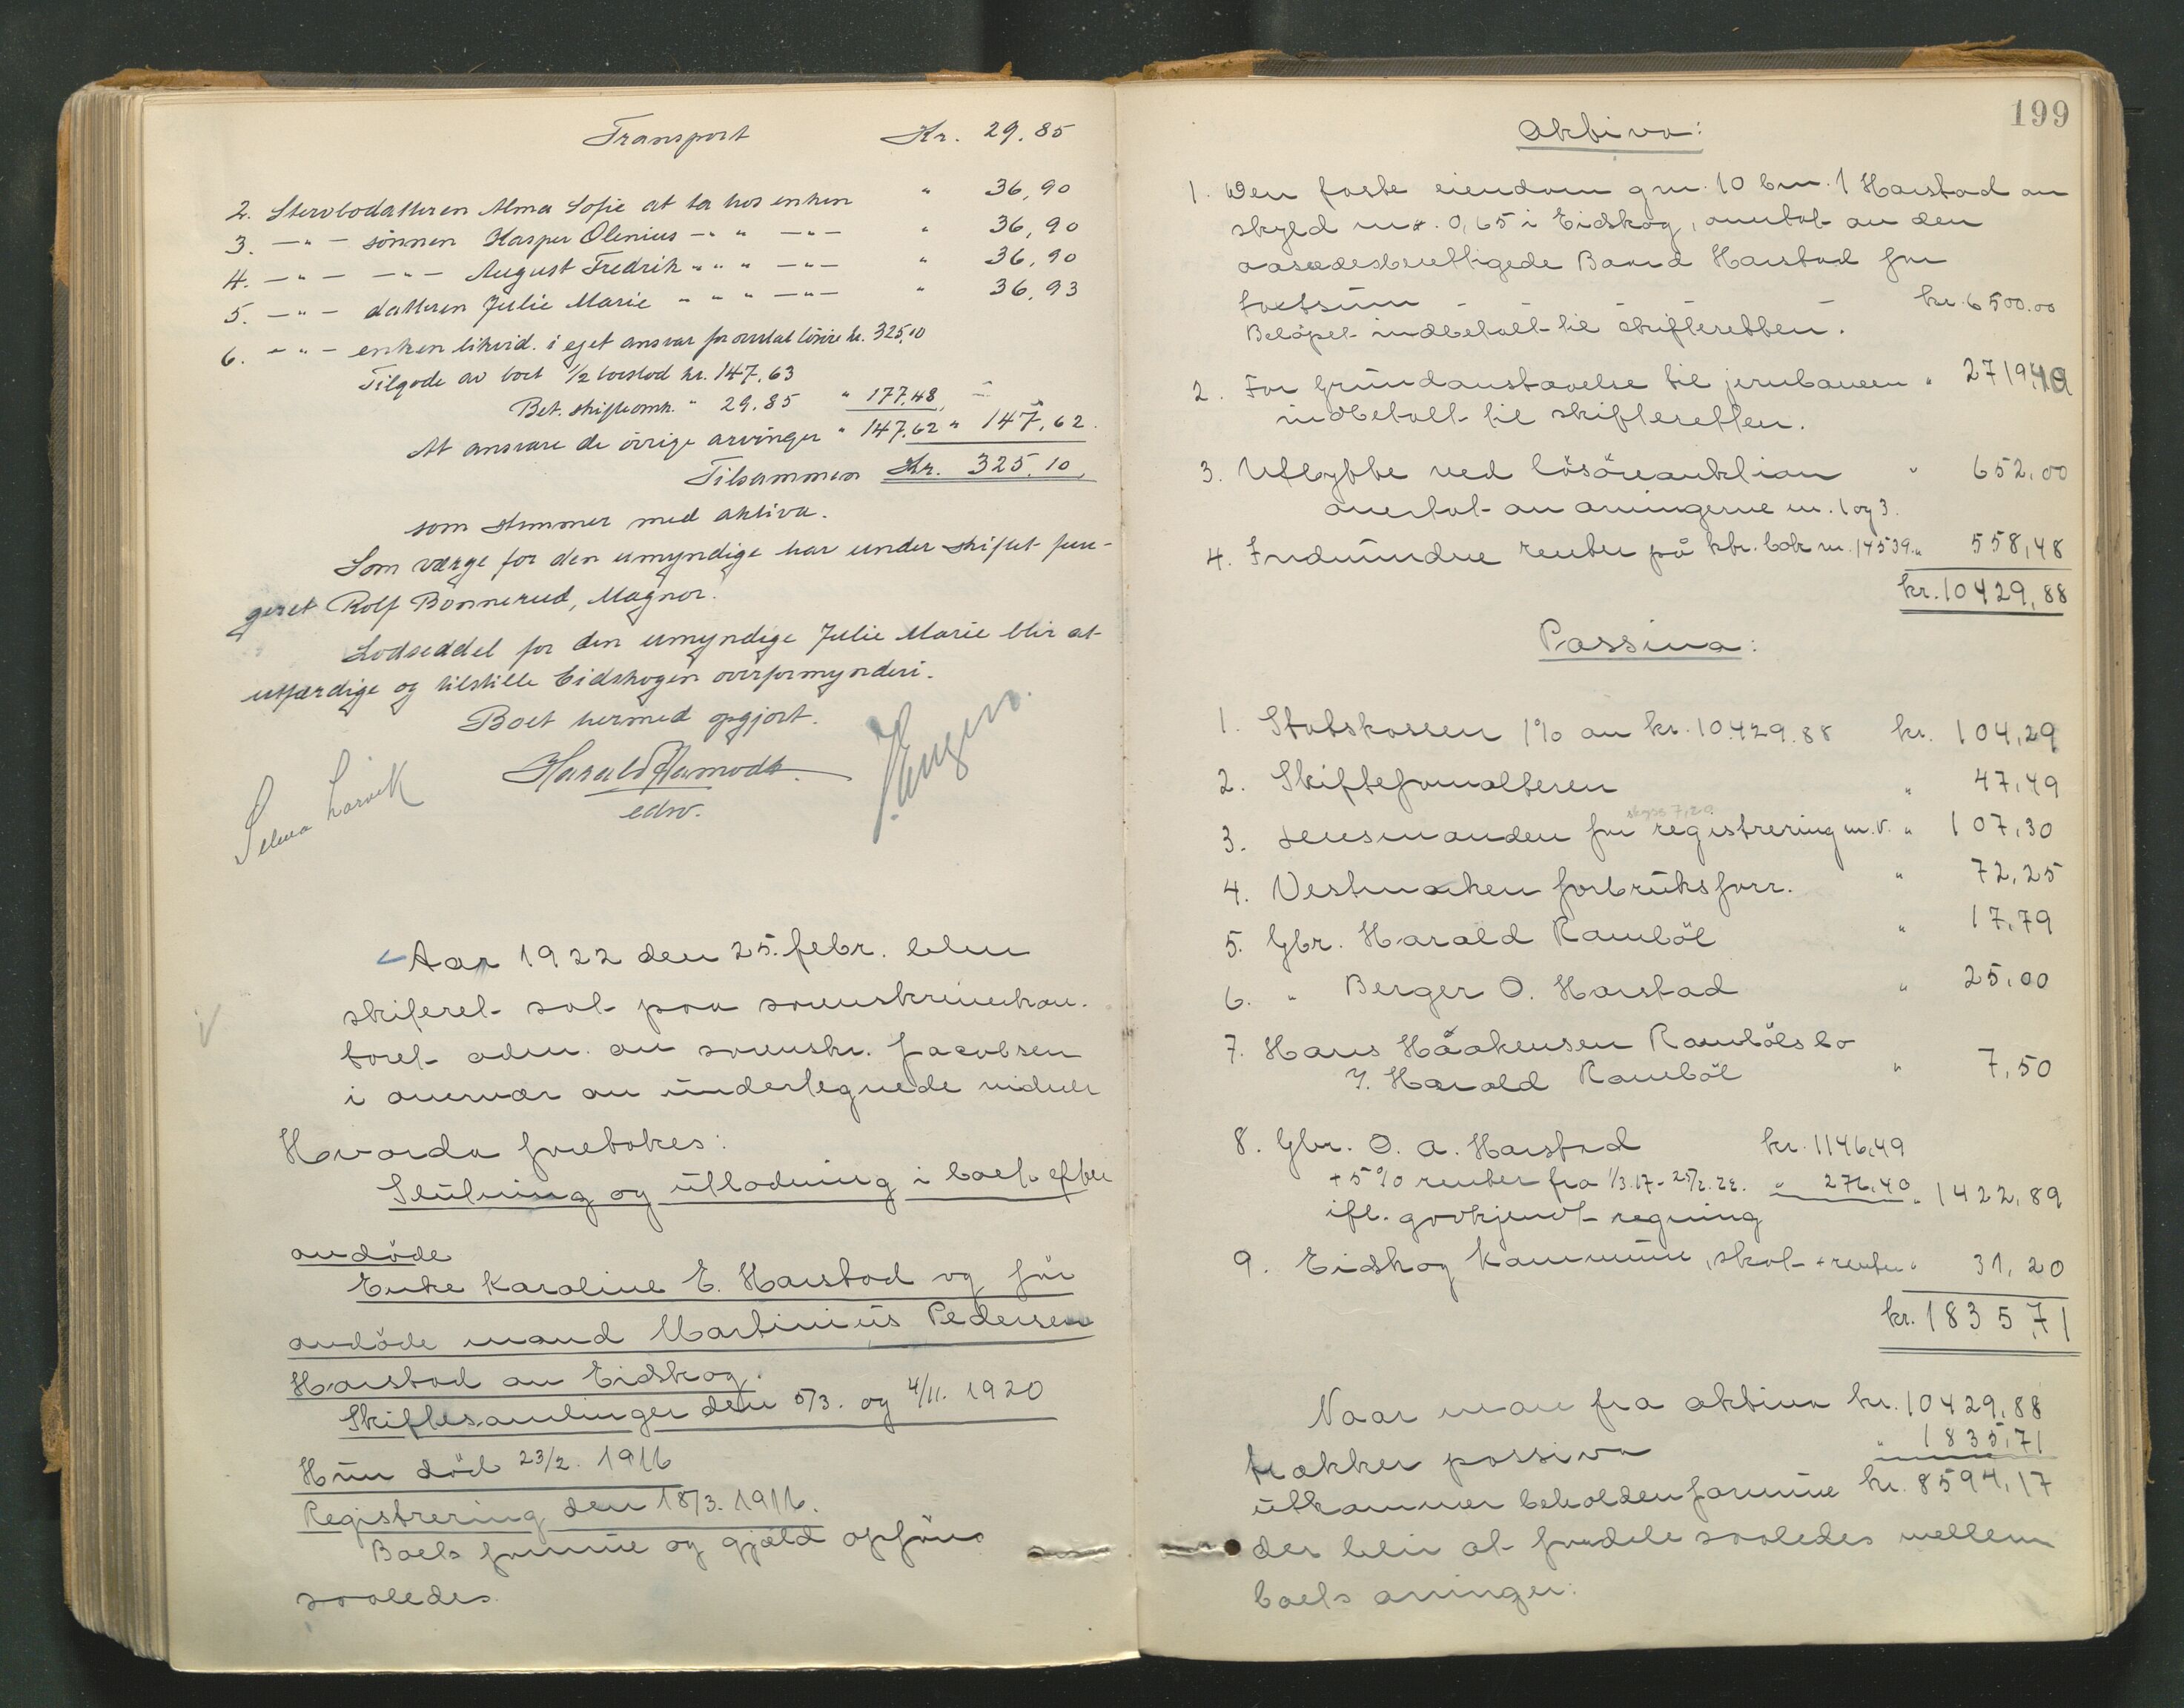 Transport Kr. 29.85
2. Stervbodatteren Alma Sofie at ta hos enken " 36,90
3. —"— sönnen Kasper Olenius —" " —"— " 36,90
4. —"— —"— August Fredrik —" " " —"— " 36,90
5. —"— datteren Julie Marie —" " " —"— " 36,93
6. —"— enken likvid. i eget ansvar for overtat lösöre kr. 325,10
Tilgode av boet 1/2 boeslod kr. 147,63
Bet. skifteomk. " 29.85 " 177.48 —"—
At ansvare de övrige arvinger " 147,62 " 147,62.
Tilsammen Kr. 325,10
som stemmer med aktiva.
Som værge for den umyndige har under skiftet fun-
geret Rolf Bonnerud, Magnor.
Lodseddel for den umyndige Julie Marie blir at
utfærdige og tilstille Eidskogen overformynderi.
Boet hermed opgjort.
Selma Larvik
Harald Aamodt.
edsv.
Aar 1922 den 25. febr. blev
skifteret sat paa sorenskriverkon-
toret adm. av sorenskr. Jacobsen
i overvær av undertegnede vidner
Hvorda foretokes:
Slutning og utlodning i boet efter
avdöde
Enke Karoline E. Harstad og för
avdöde mand Martinius Pedersen
Harstad av Eidskog.
Skiftesamlinger den 5/3. og 4/11. 1920
Hun död 23/2. 1916
Registrering den 18/3. 1916.
Boets formue og gjæld opföres
saaledes
199
Aktiva:
1. Den faste eiendom gnr. 10 bnr. 1 Harstad av
skyld mk. 0,65 i Eidskog, overtat av den
aasædesberettigede Harstad for
takstsum - - - - kr. 6500.00
Belöpet indbetalt til skifteretten.
2. For grundavstaaelse til jernbanen " 2719,40
indbetalt til skifteretten.
3. Utbytte ved lösöreauktion " 652,00
overtat av arvingerne nr. 1 og 3.
4. Indvundne renter på kbr. bok nr. 14539. " 558,48
kr. 10429,88
Passiva:
1. Statskassen 1% av kr. 10.429.88 kr. 104,29
2. Skifteforvalteren " 47,49
skyss 7,20
3. Lensmanden for registrering m.v. " 107,30
4. Vestmarken forbruksforr. " 72,25
5. Gbr. Harald Ramböl " 17,79
6. " Berger O. Harstad " 25,00
7. Hans Håakensen Rambölsbo
v. Harald Ramböl " 7,50
8. Gbr. O. A. Harstad kr. 1146,49
+ 5% renter fra 1/3.17 - 25/2.22. " 276,40 " 1422,89
ifl. godkjendt regning
9. Eidskog kommune, skat + renter " 31,20
kr. 1835,71
Naar man fra aktiva kr. 10429,88
trækker passiva " 1835,71
utkommer beholden formue kr. 8594,17
der blir at fordele saaledes mellem
boets arvinger: